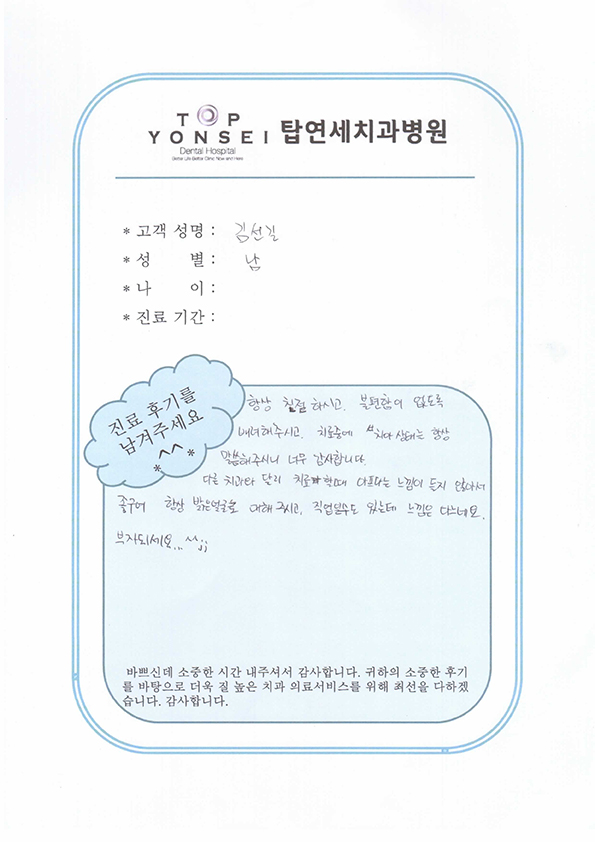 TOP
YONSEI 탑연세치과병원
Dental Hospital
Better Life Better Clinic Now and Here
* 고객 성명 : 김선길
* 성 별 : 남
* 나 이 :
* 진료 기간 :
진료 후기를
남겨주세요
*^^*
항상 친절하시고. 불편함이 없도록
배려해주시고. 치료중에 상태는 항상
말씀해주시니 너무 감사합니다.
다른 치과와 달리 치료할때 아프다는 느낌이 든지 않아서
좋구여 항상 밝은얼굴로 대해 주시고, 직업일수도 있는데 느낌은 다르네요.
부자되세요... ^^;;
바쁘신데 소중한 시간 내주셔서 감사합니다. 귀하의 소중한 후기
를 바탕으로 더욱 질 높은 치과 의료서비스를 위해 최선을 다하겠
습니다. 감사합니다.